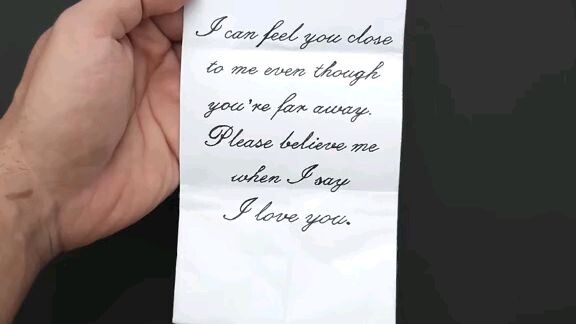 I can feel you close
to me even though
you're far away.
Please believe me
when I say
I love you.